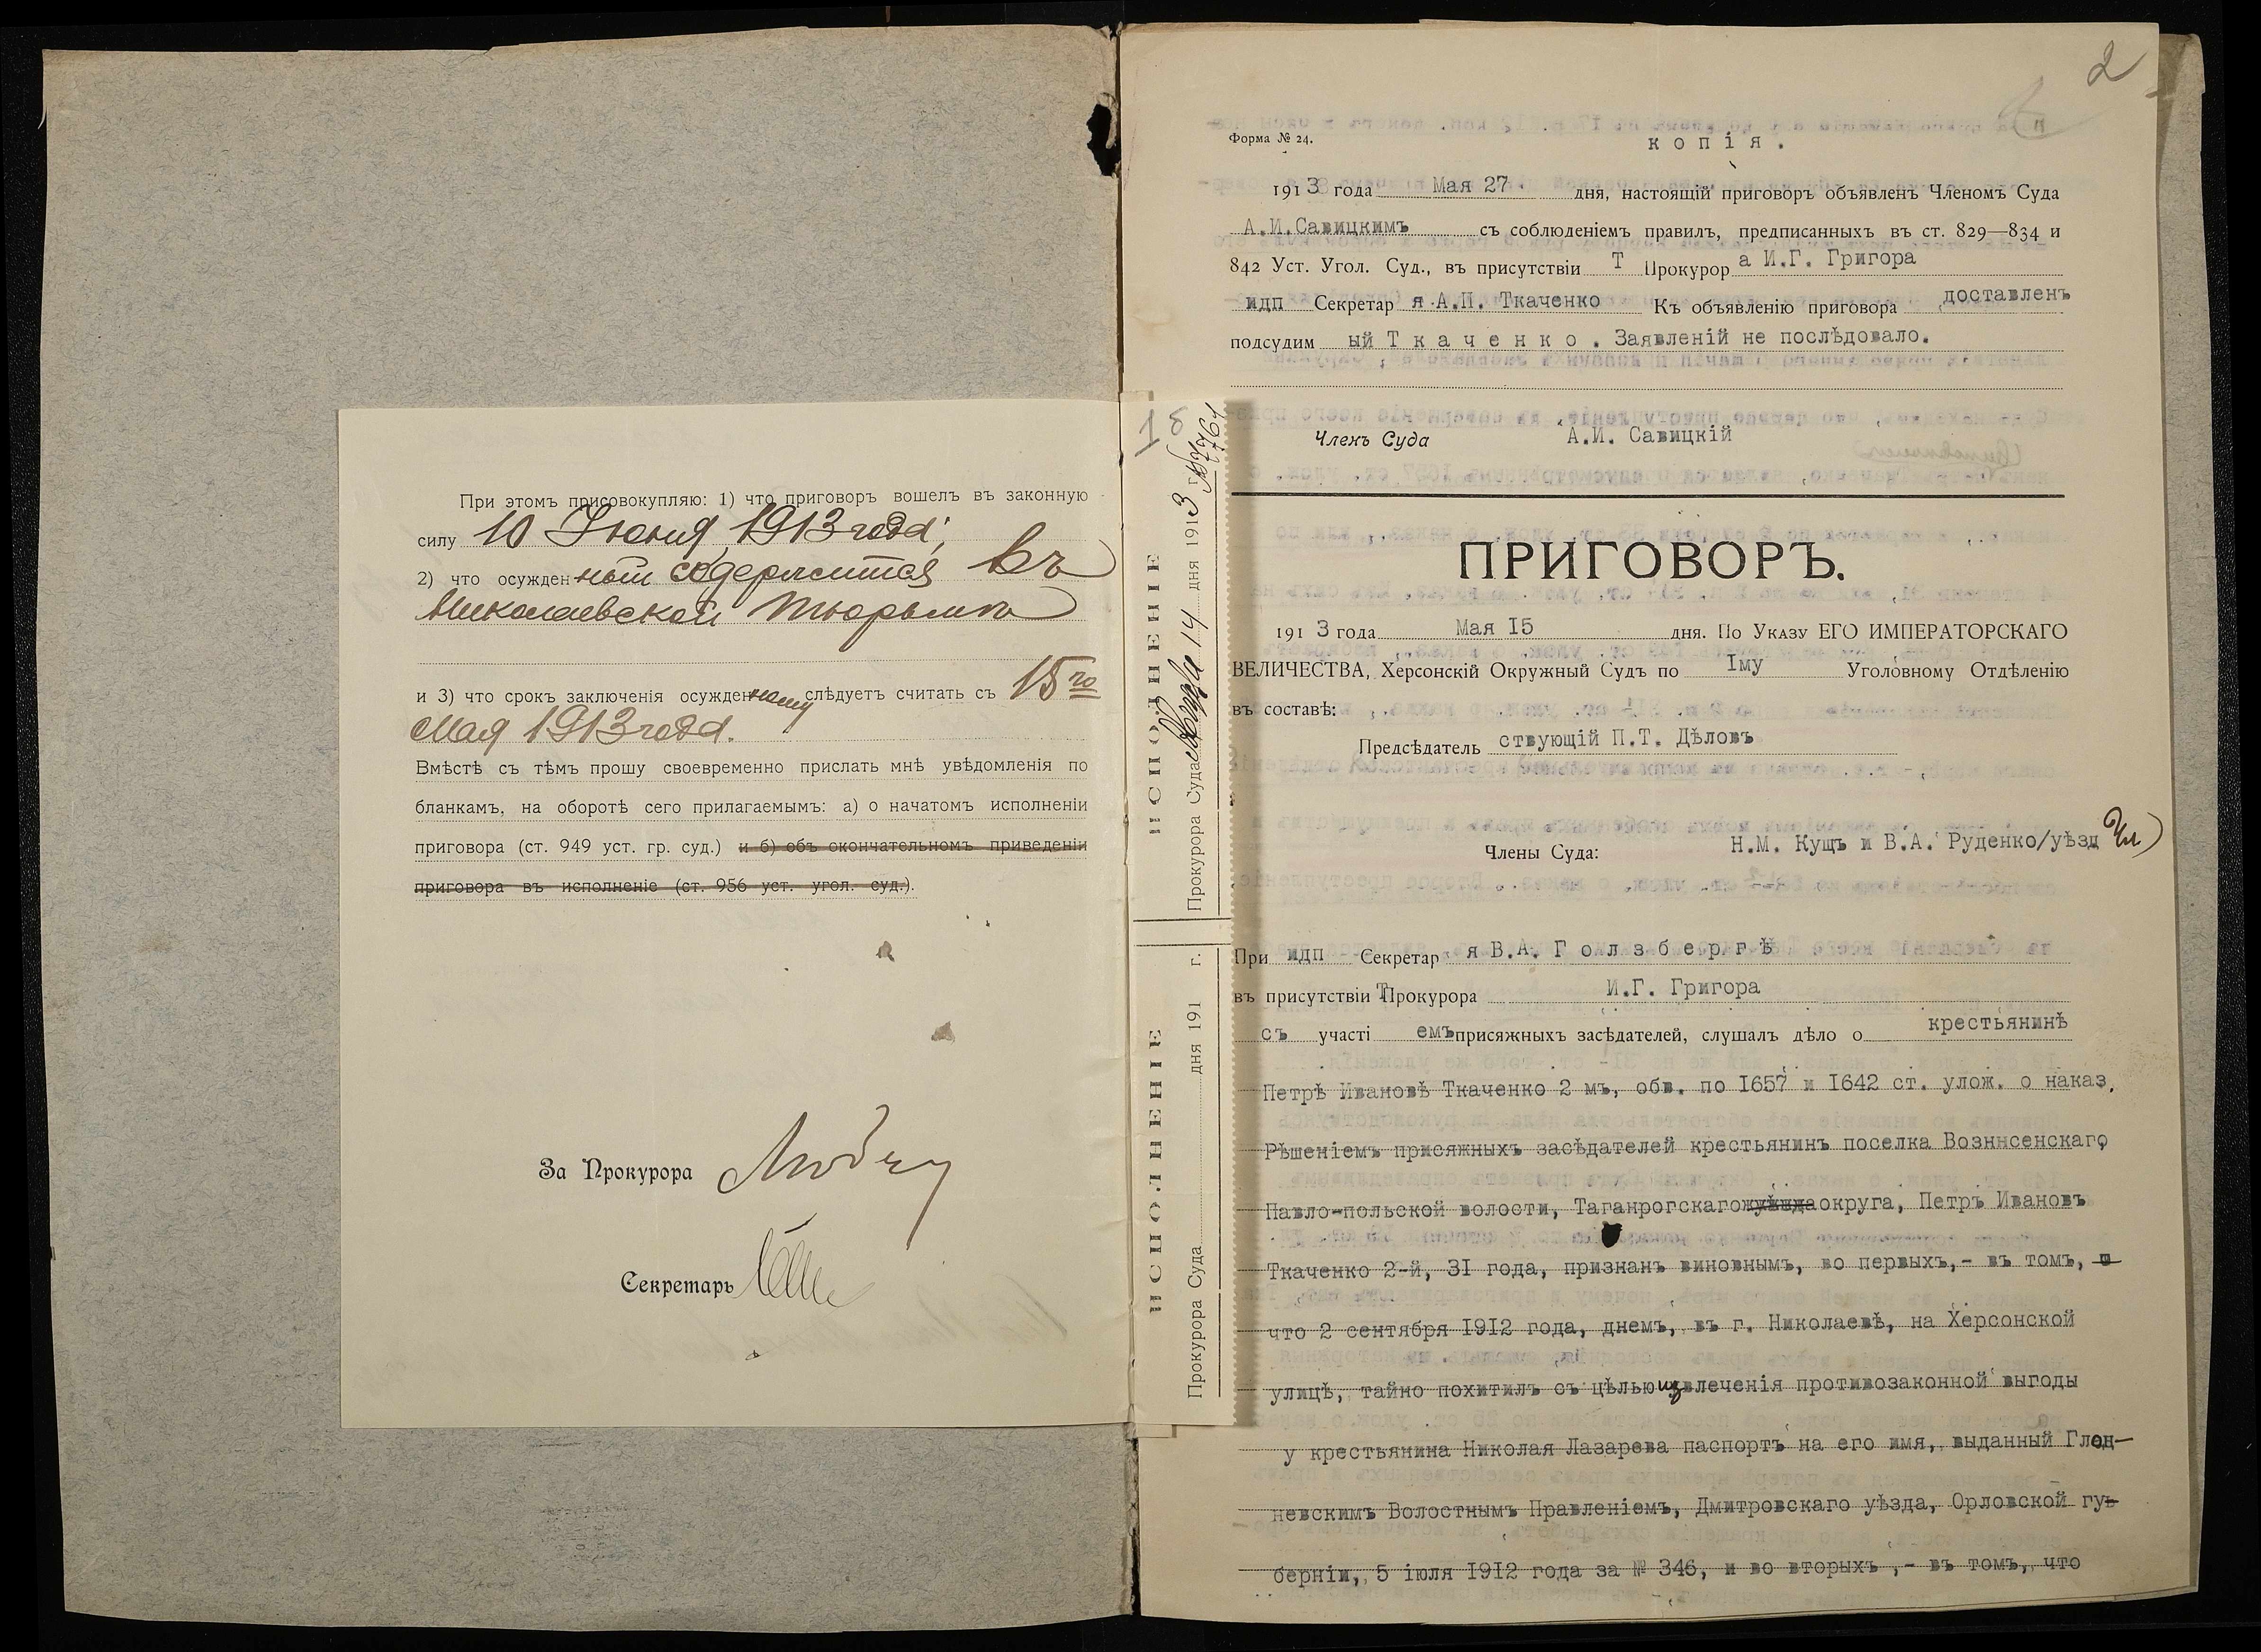 При этомъ присовокупляю: 1) что приговоръ вошелъ въ законную
силу 10 Іюня 1913 года;
2) что осужденный содержится въ
Николаевской тюрьмѣ
и 3) что срокъ заключенія осужденному слѣдуетъ считать съ 15го
Мая 1913 года.
Вмѣстѣ съ тѣмъ прошу своевременно прислать мнѣ увѣдомленія по
бланкамъ, на оборотѣ сего прилагаемымъ: а) о начатомъ исполненіи
приговора (ст. 949 уст. гр. суд.) и б) объ окончательномъ приведеніи
приговора въ исполненіе (ст. 956 уст. угол. суд.).
За Прокурора
Секретарь
ИСПОЛНЕНІЕ
Прокурора Суда 14 дня 1913 г. №
ИСПОЛНЕНІЕ
Прокурора Суда дня 191 г.
2
Форма № 24.
копія.
1913 года Мая 27. дня, настоящій приговоръ объявленъ Членомъ Суда
А.И.Савицкимъ съ соблюденіемъ правилъ, предписанныхъ въ ст. 829—834 и
842 Уст. Угол. Суд., въ присутствіи Т Прокурора И.Г. Григора
идп Секретаря А.П. Ткаченко Къ объявленію приговора доставленъ
подсудимый Ткаченко. Заявленій не послѣдовало.
Членъ Суда А.И. Савицкій
ПРИГОВОРЪ.
1913 года Мая I5 дня. По Указу ЕГО ИМПЕРАТОРСКАГО
ВЕЛИЧЕСТВА, Херсонскій Окружный Судъ по Iму Уголовному Отдѣленію
въ составѣ:
Предсѣдательствующій П.Т. Дѣловъ
Члены Суда: Н.М. Кущъ и В.А. Руденко/уѣзд Чл)
При идп Секретаря В.А. Голзбергѣ
въ присутствіи Т Прокурора И.Г. Григора
съ участіемъ присяжныхъ засѣдателей, слушалъ дѣло о крестьянинѣ
Петрѣ Ивановѣ Ткаченко 2 мъ, обв. по I657 и I642 ст. улож. о наказ.
Рѣшеніемъ присяжныхъ засѣдателей крестьянинъ поселка Вознисенскаго
Павло-польской волости, Таганрогскаго уѣзда округа, Петръ Ивановъ
Ткаченко 2-й, 3I года, признанъ виновнымъ, во первыхъ,- въ томъ,
что 2 сентября I9I2 года, днемъ, въ г. Николаевѣ, на Херсонской
улицѣ, тайно похитилъ съ цѣлью извлеченія противозаконной выгоды
у крестьянина Николая Лазарева паспортъ на его имя, выданный Глод-
невскимъ Волостнымъ Правленіемъ, Дмитровскаго уѣзда, Орловской гу-
берніи, 5 іюля I9I2 года за № 346, и во вторыхъ,- въ томъ, что